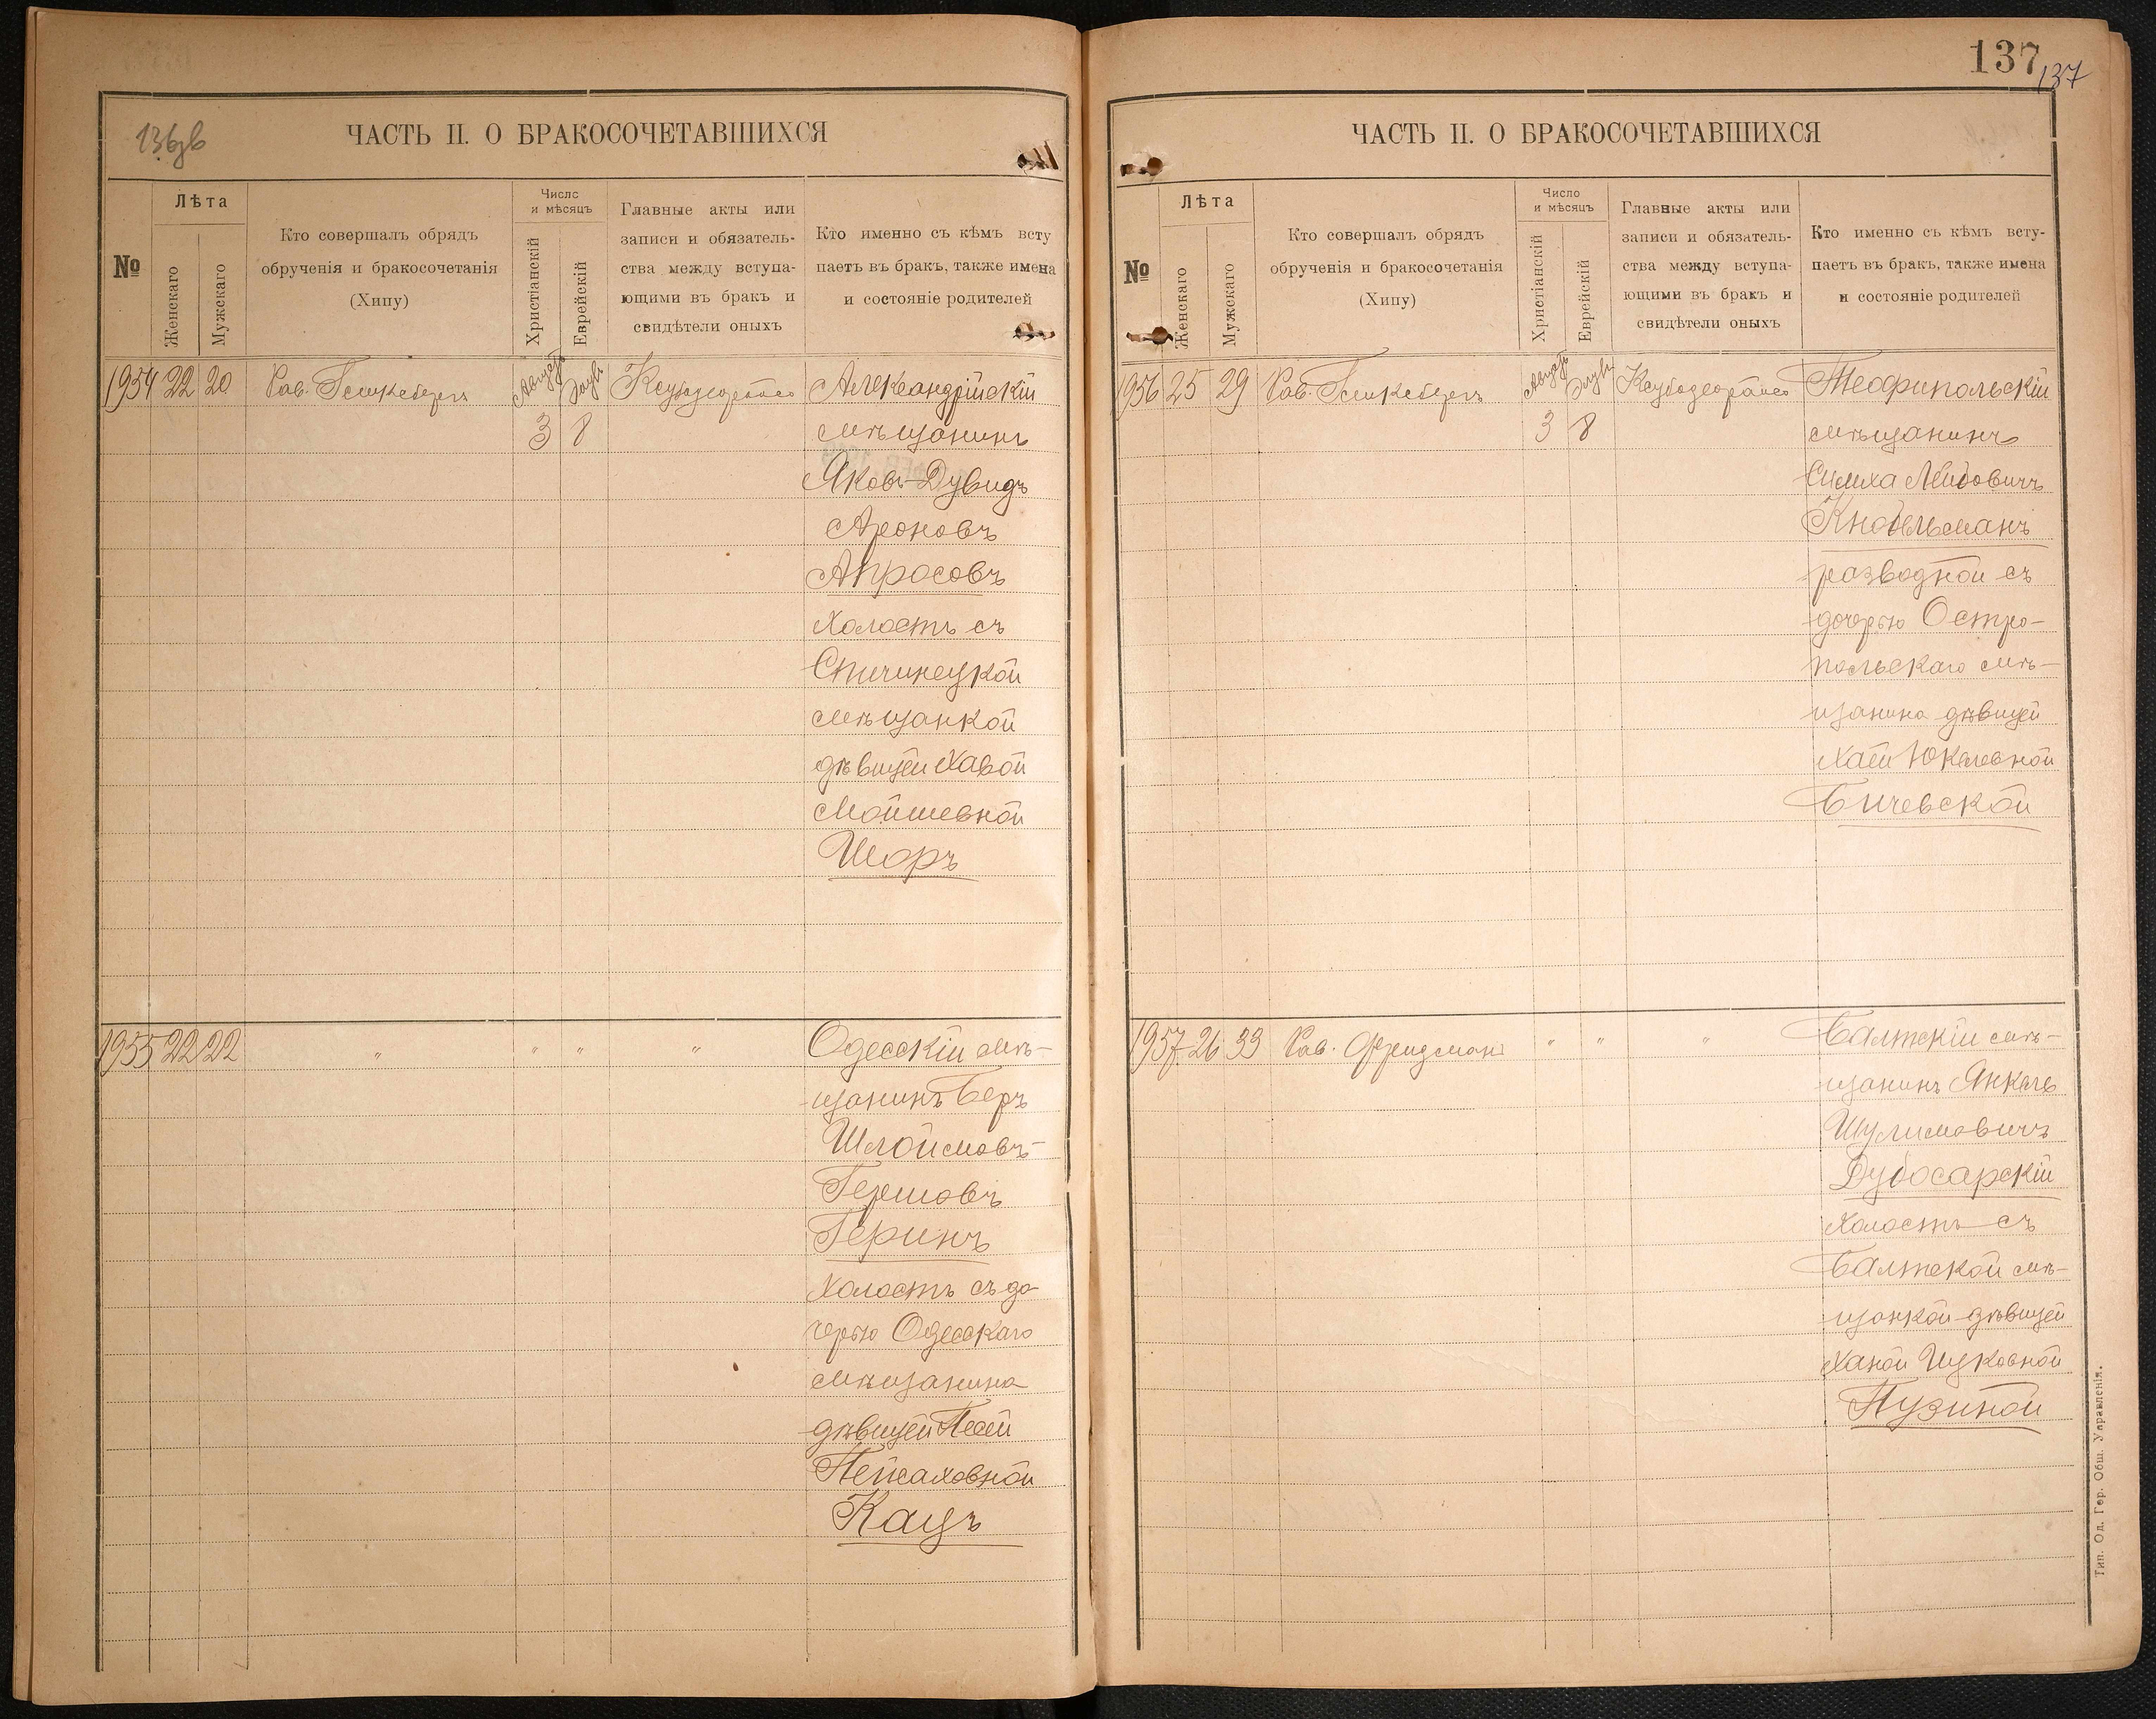 136 об
ЧАСТЬ II. О БРАКОСОЧЕТАВШИХСЯ
№
Лѣта
Женскаго
Мужскаго
Кто совершалъ обрядъ
обрученія и бракосочетанія
(Хипу)
Число
и мѣсяцъ
Христіанскій
Еврейскій
Главные акты или
записи и обязатель-
ства между вступа-
ющими въ бракъ и
свидѣтели оныхъ
Кто именно съ кѣмъ всту
паетъ въ бракъ, также имена
и состояніе родителей
1954 22 20 Рав. Августъ Элулъ Александрійскій
3 8 мѣщанинъ
Яковъ-Дувидъ
Ароновъ
Апросовъ
холостъ съ
Спичинецкой
мѣщанкой
дѣвицей Хавой
Мойшевной
Шоръ
1955 22 22 " " " " Одесскій мѣ-
щанинъ Беръ
Шлоймовъ-
Гершовъ
Геринъ
холостъ съ до
черью Одесскаго
мѣщанина
дѣвицей Песей
Пейсаховной
Кацъ
137
137
ЧАСТЬ II. О БРАКОСОЧЕТАВШИХСЯ
№
Лѣта
Женскаго
Мужскаго
Кто совершалъ обрядъ
обрученія и бракосочетанія
(Хипу)
Число
и мѣсяцъ
Христіанскій
Еврейскій
Главные акты или
записи и обязатель-
ства между вступа-
ющими въ бракъ и
свидѣтели оныхъ
Кто именно съ кѣмъ всту-
паетъ въ бракъ, также имена
и состояніе родителей
1956 25 29 Рав. Августъ Элулъ Теофипольскій
3 8 мѣщанинъ
Симха Лейбовичъ
Кнобельманъ
разводной съ
дочерью Остро-
польскаго мѣ-
щанина дѣвицей
Хаей Юкелевной
Бичевской
1957 26 33 Рав. Фридманъ " " " Балтскій мѣ-
щанинъ Янкель
Шулимовичъ
Дубосарскій
холостъ съ
Балтской мѣ-
щанкой дѣвицей
Ханой Ицковной
Пузиной
Тип. Од. Гор. Общ. Управленія.